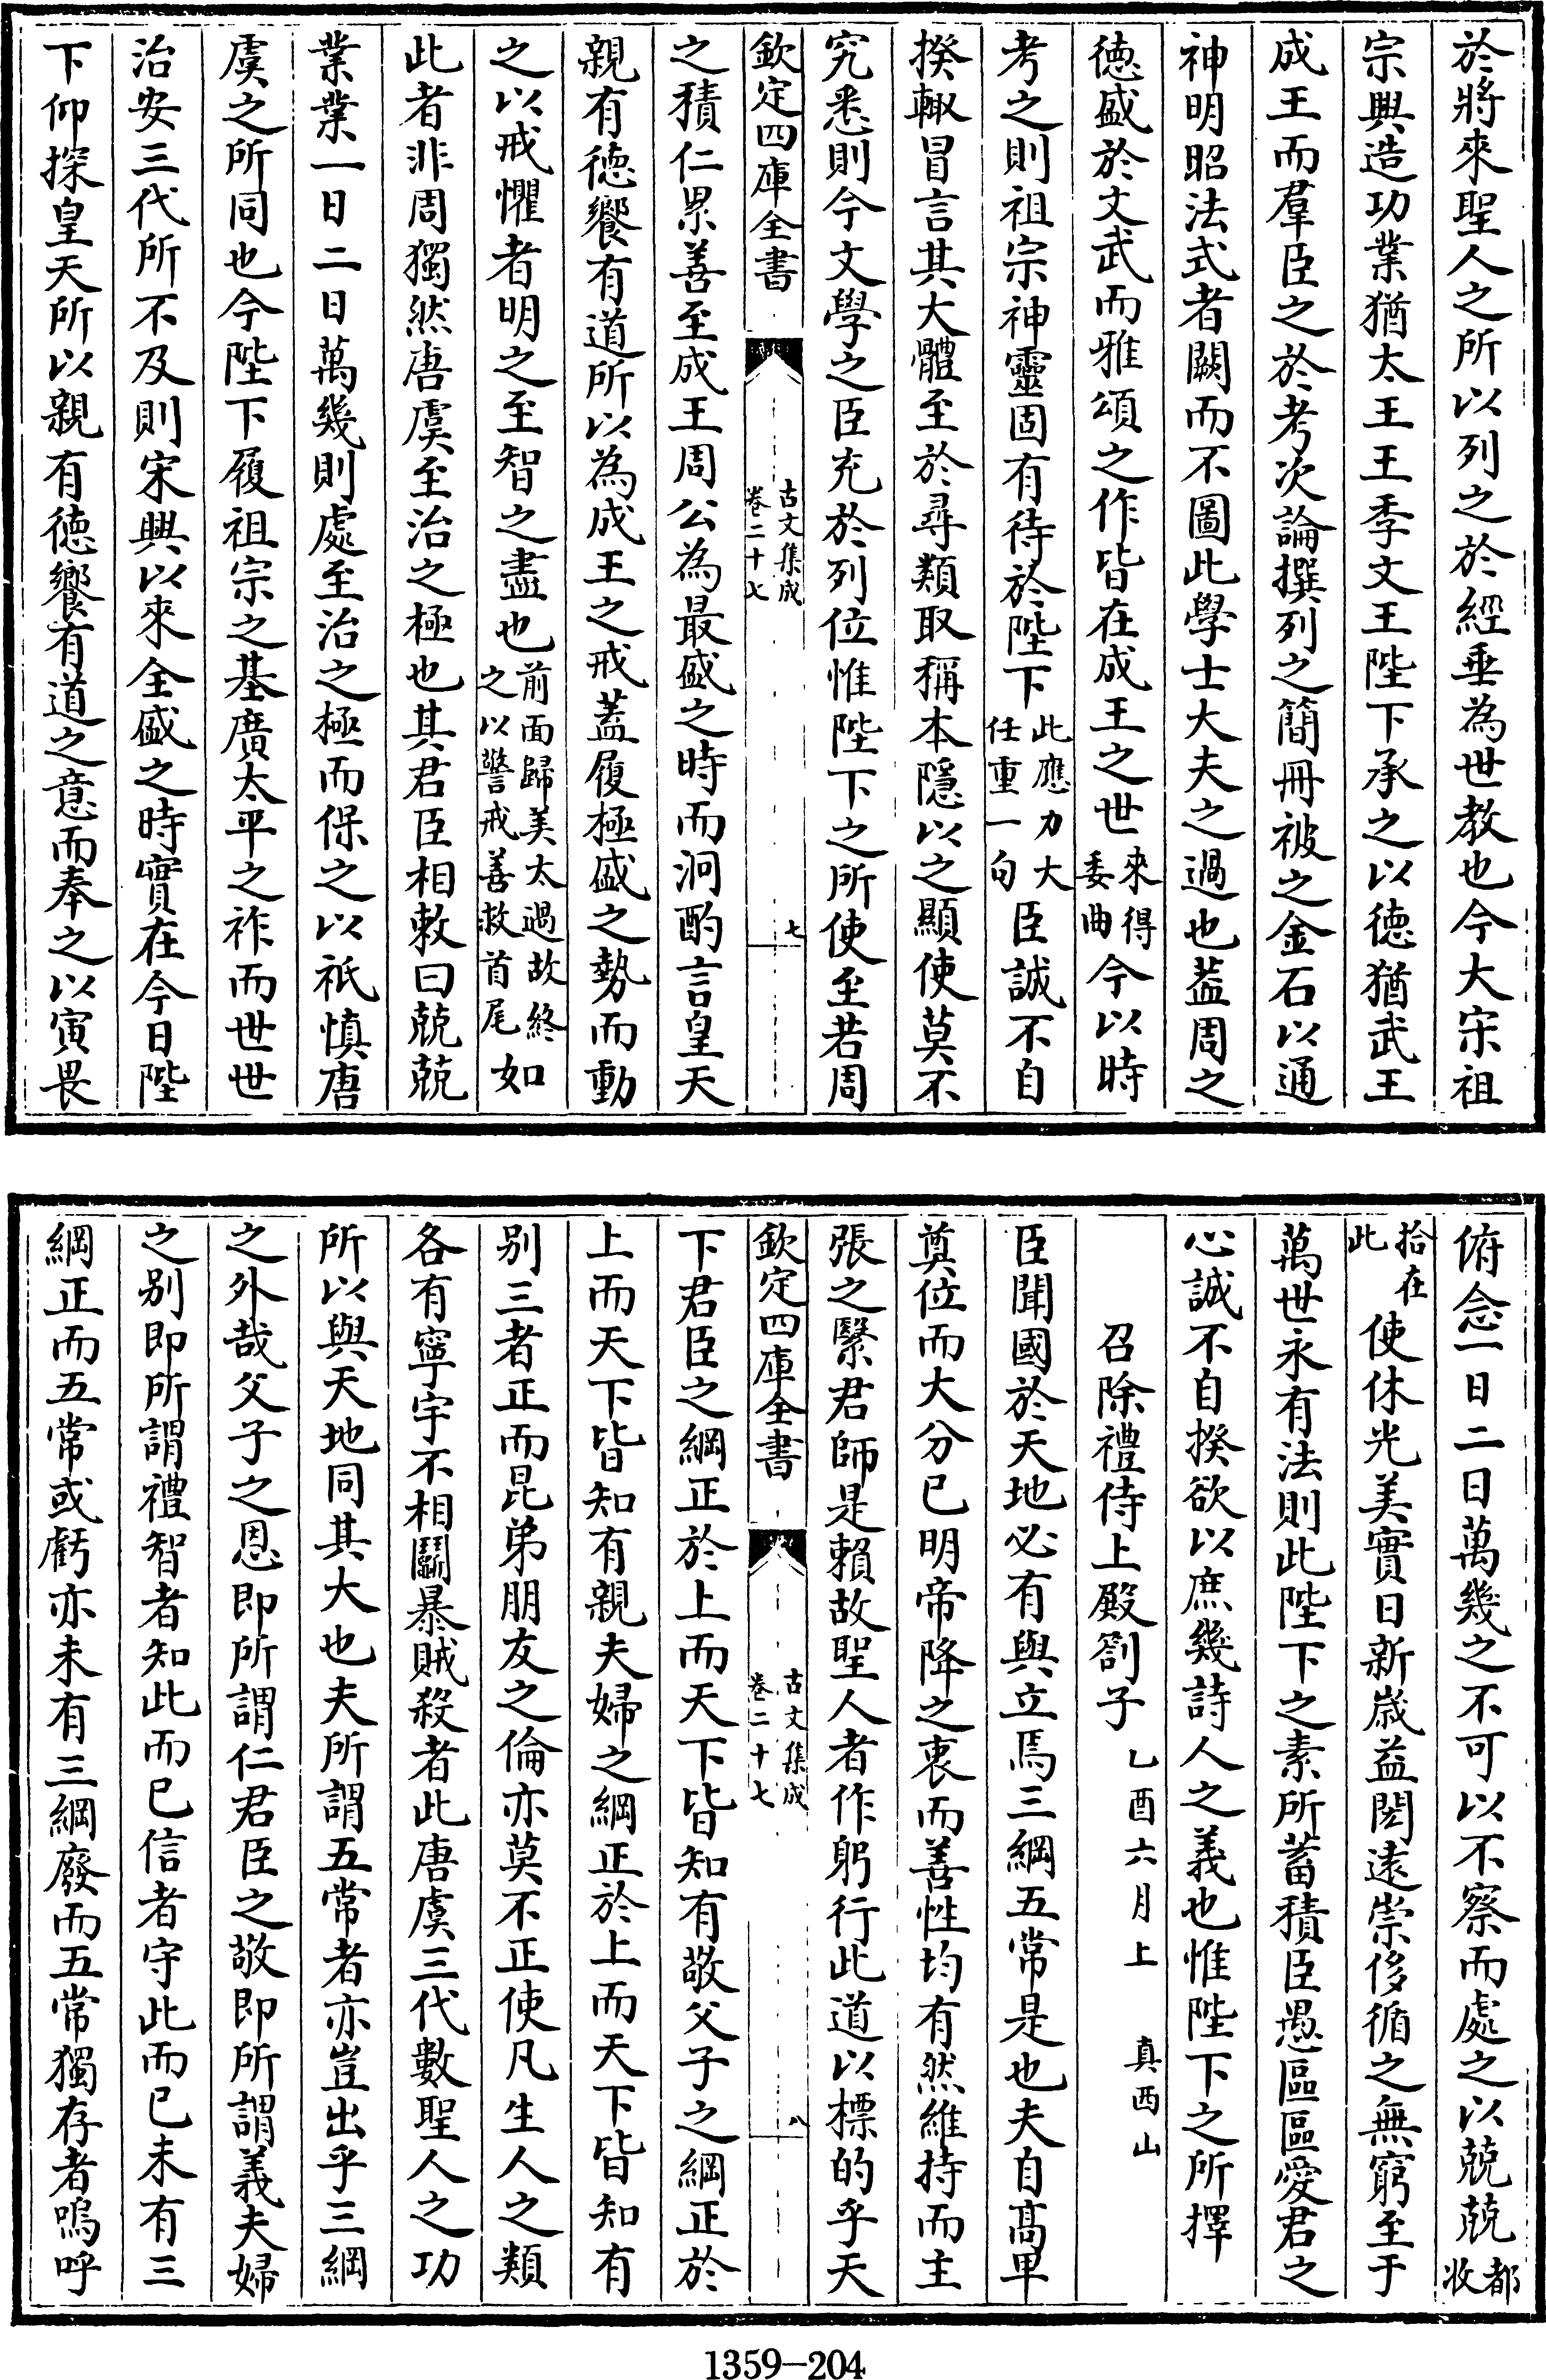 於將來聖人之所以列之於經垂為世教也今大宋祖
宗興造功業猶太王王季文王陛下承之以德猶武王
成王而羣臣之於考次論撰列之簡冊被之金石以通
神明昭法式者闕而不圖此學士大夫之過也葢周之
德盛於文武而雅頌之作皆在成王之世來得委曲今以時
考之則祖宗神靈固有待於陛下此應力大任重一句臣誠不自
揆輙冒言其大體至於尋類取稱本隱以之顯使莫不
究悉則今文學之臣充於列位惟陛下之所使至若周
欽定四庫全書
古文集成
卷二十七
七
之積仁累善至成王周公為最盛之時而泂酌言皇天
親有德饗有道所以為成王之戒蓋履極盛之勢而動
之以戒懼者明之至智之盡也前面歸美太過故終之以警戒善救首尾如
此者非周獨然唐虞至治之極也其君臣相敕曰兢兢
業業一日二日萬幾則處至治之極而保之以祇慎唐
虞之所同也今陛下履祖宗之基廣太平之祚而世世
治安三代所不及則宋興以來全盛之時實在今日陛
下仰探皇天所以親有德饗有道之意而奉之以寅畏
俯念一日二日萬幾之不可以不察而處之以兢兢都收
拾在此使休光美實日新歲益閎遠崇侈循之無窮至于
萬世永有法則此陛下之素所蓄積臣愚區區愛君之
心誠不自揆欲以庶幾詩人之義也惟陛下之所擇
召除禮侍上殿劄子乙酉六月上 真西山
臣聞國於天地必有與立焉三綱五常是也夫自髙卑
奠位而大分已明帝降之衷而善性均有然維持而主
張之繄君師是賴故聖人者作躬行此道以標的乎天
欽定四庫全書
古文集成
卷二十七
八
下君臣之綱正於上而天下皆知有敬父子之綱正於
上而天下皆知有親夫婦之綱正於上而天下皆知有
别三者正而昆弟朋友之倫亦莫不正使凡生人之類
各有寧宇不相鬭暴賊殺者此唐虞三代數聖人之功
所以與天地同其大也夫所謂五常者亦豈出乎三綱
之外哉父子之恩即所謂仁君臣之敬即所謂義夫婦
之别即所謂禮智者知此而已信者守此而已未有三
綱正而五常或虧亦未有三綱廢而五常獨存者嗚呼
1359-204